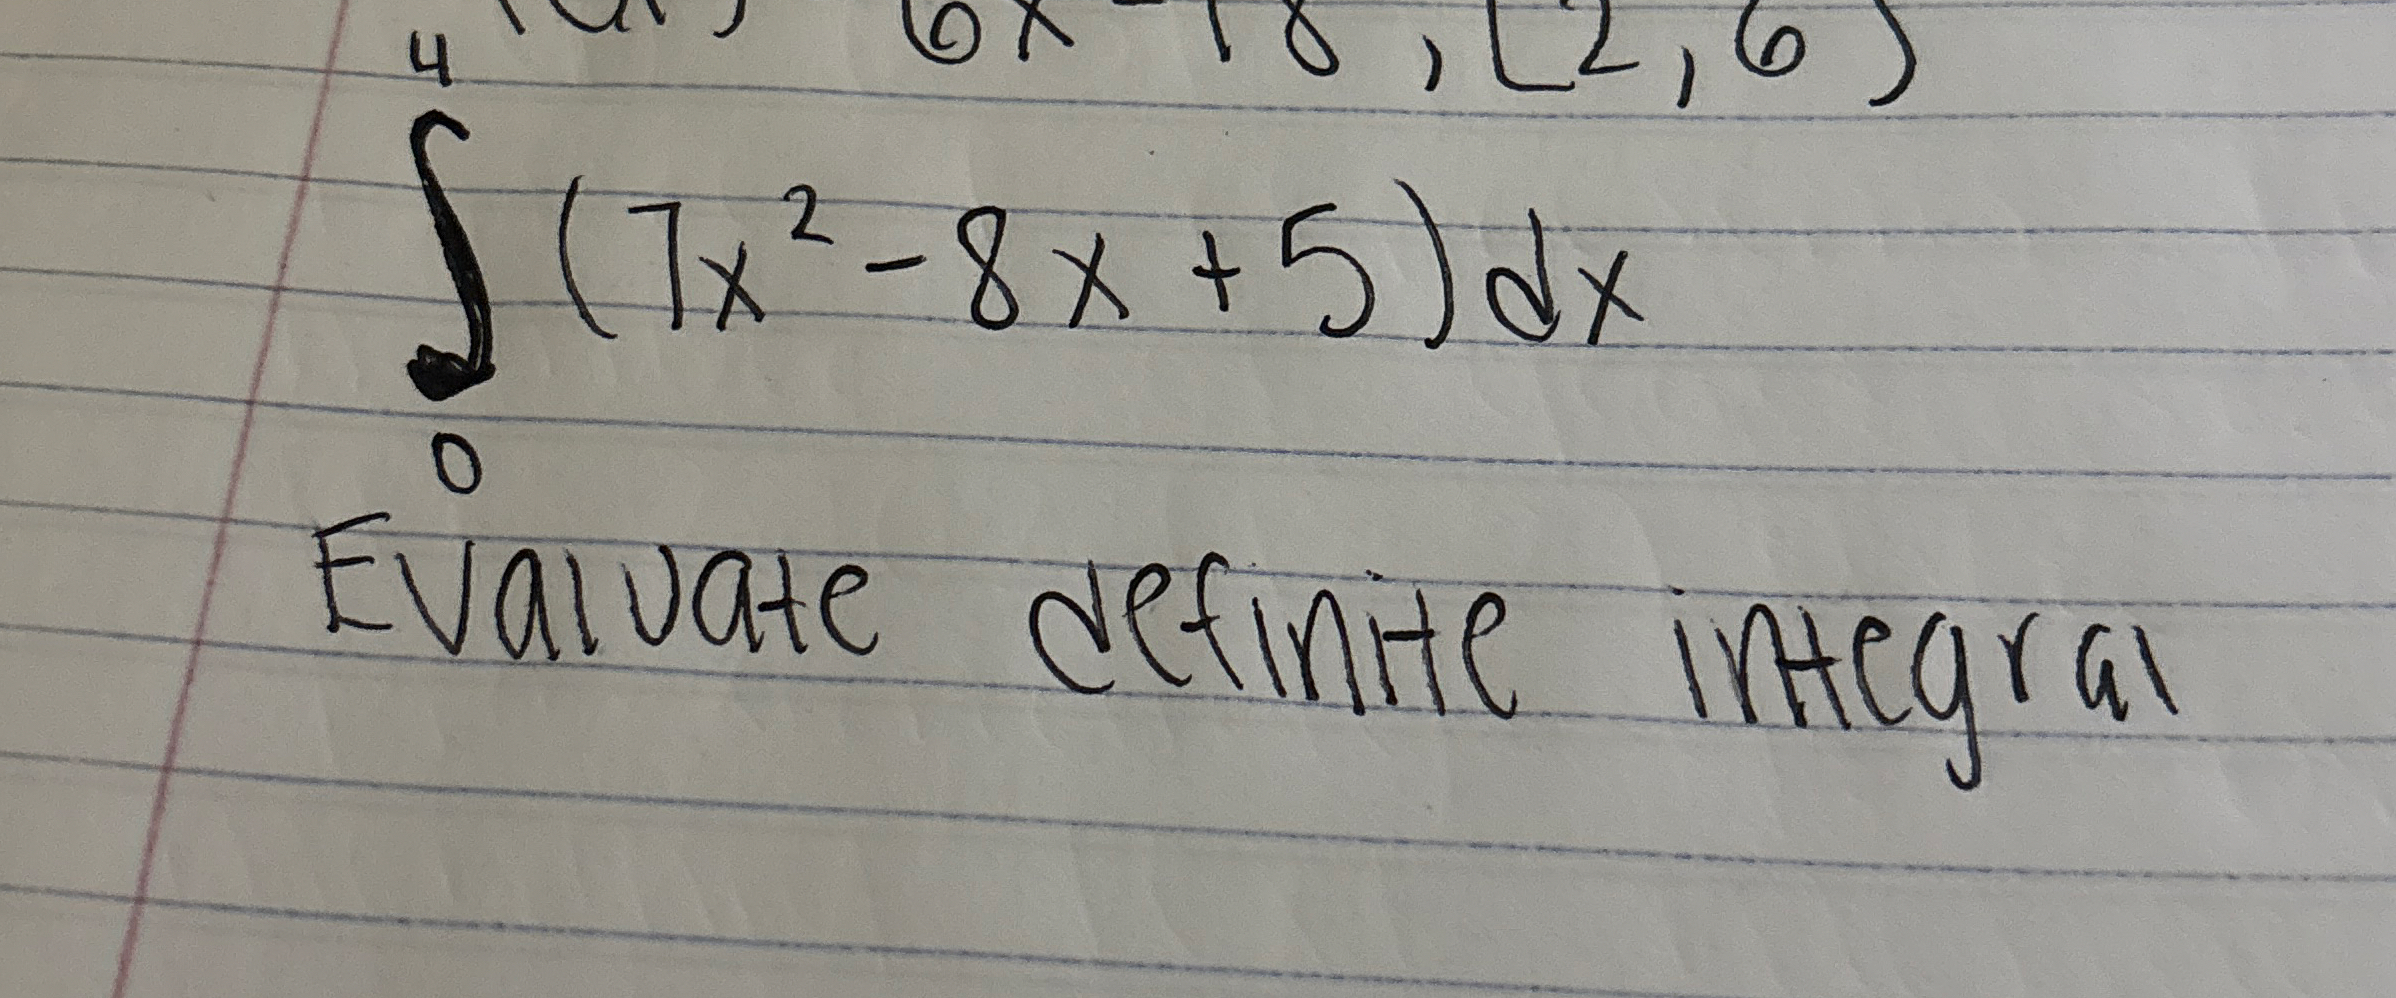 6x-18, [2,6)
4
∫ (7x² - 8x + 5) dx
0
Evaluate definite integral